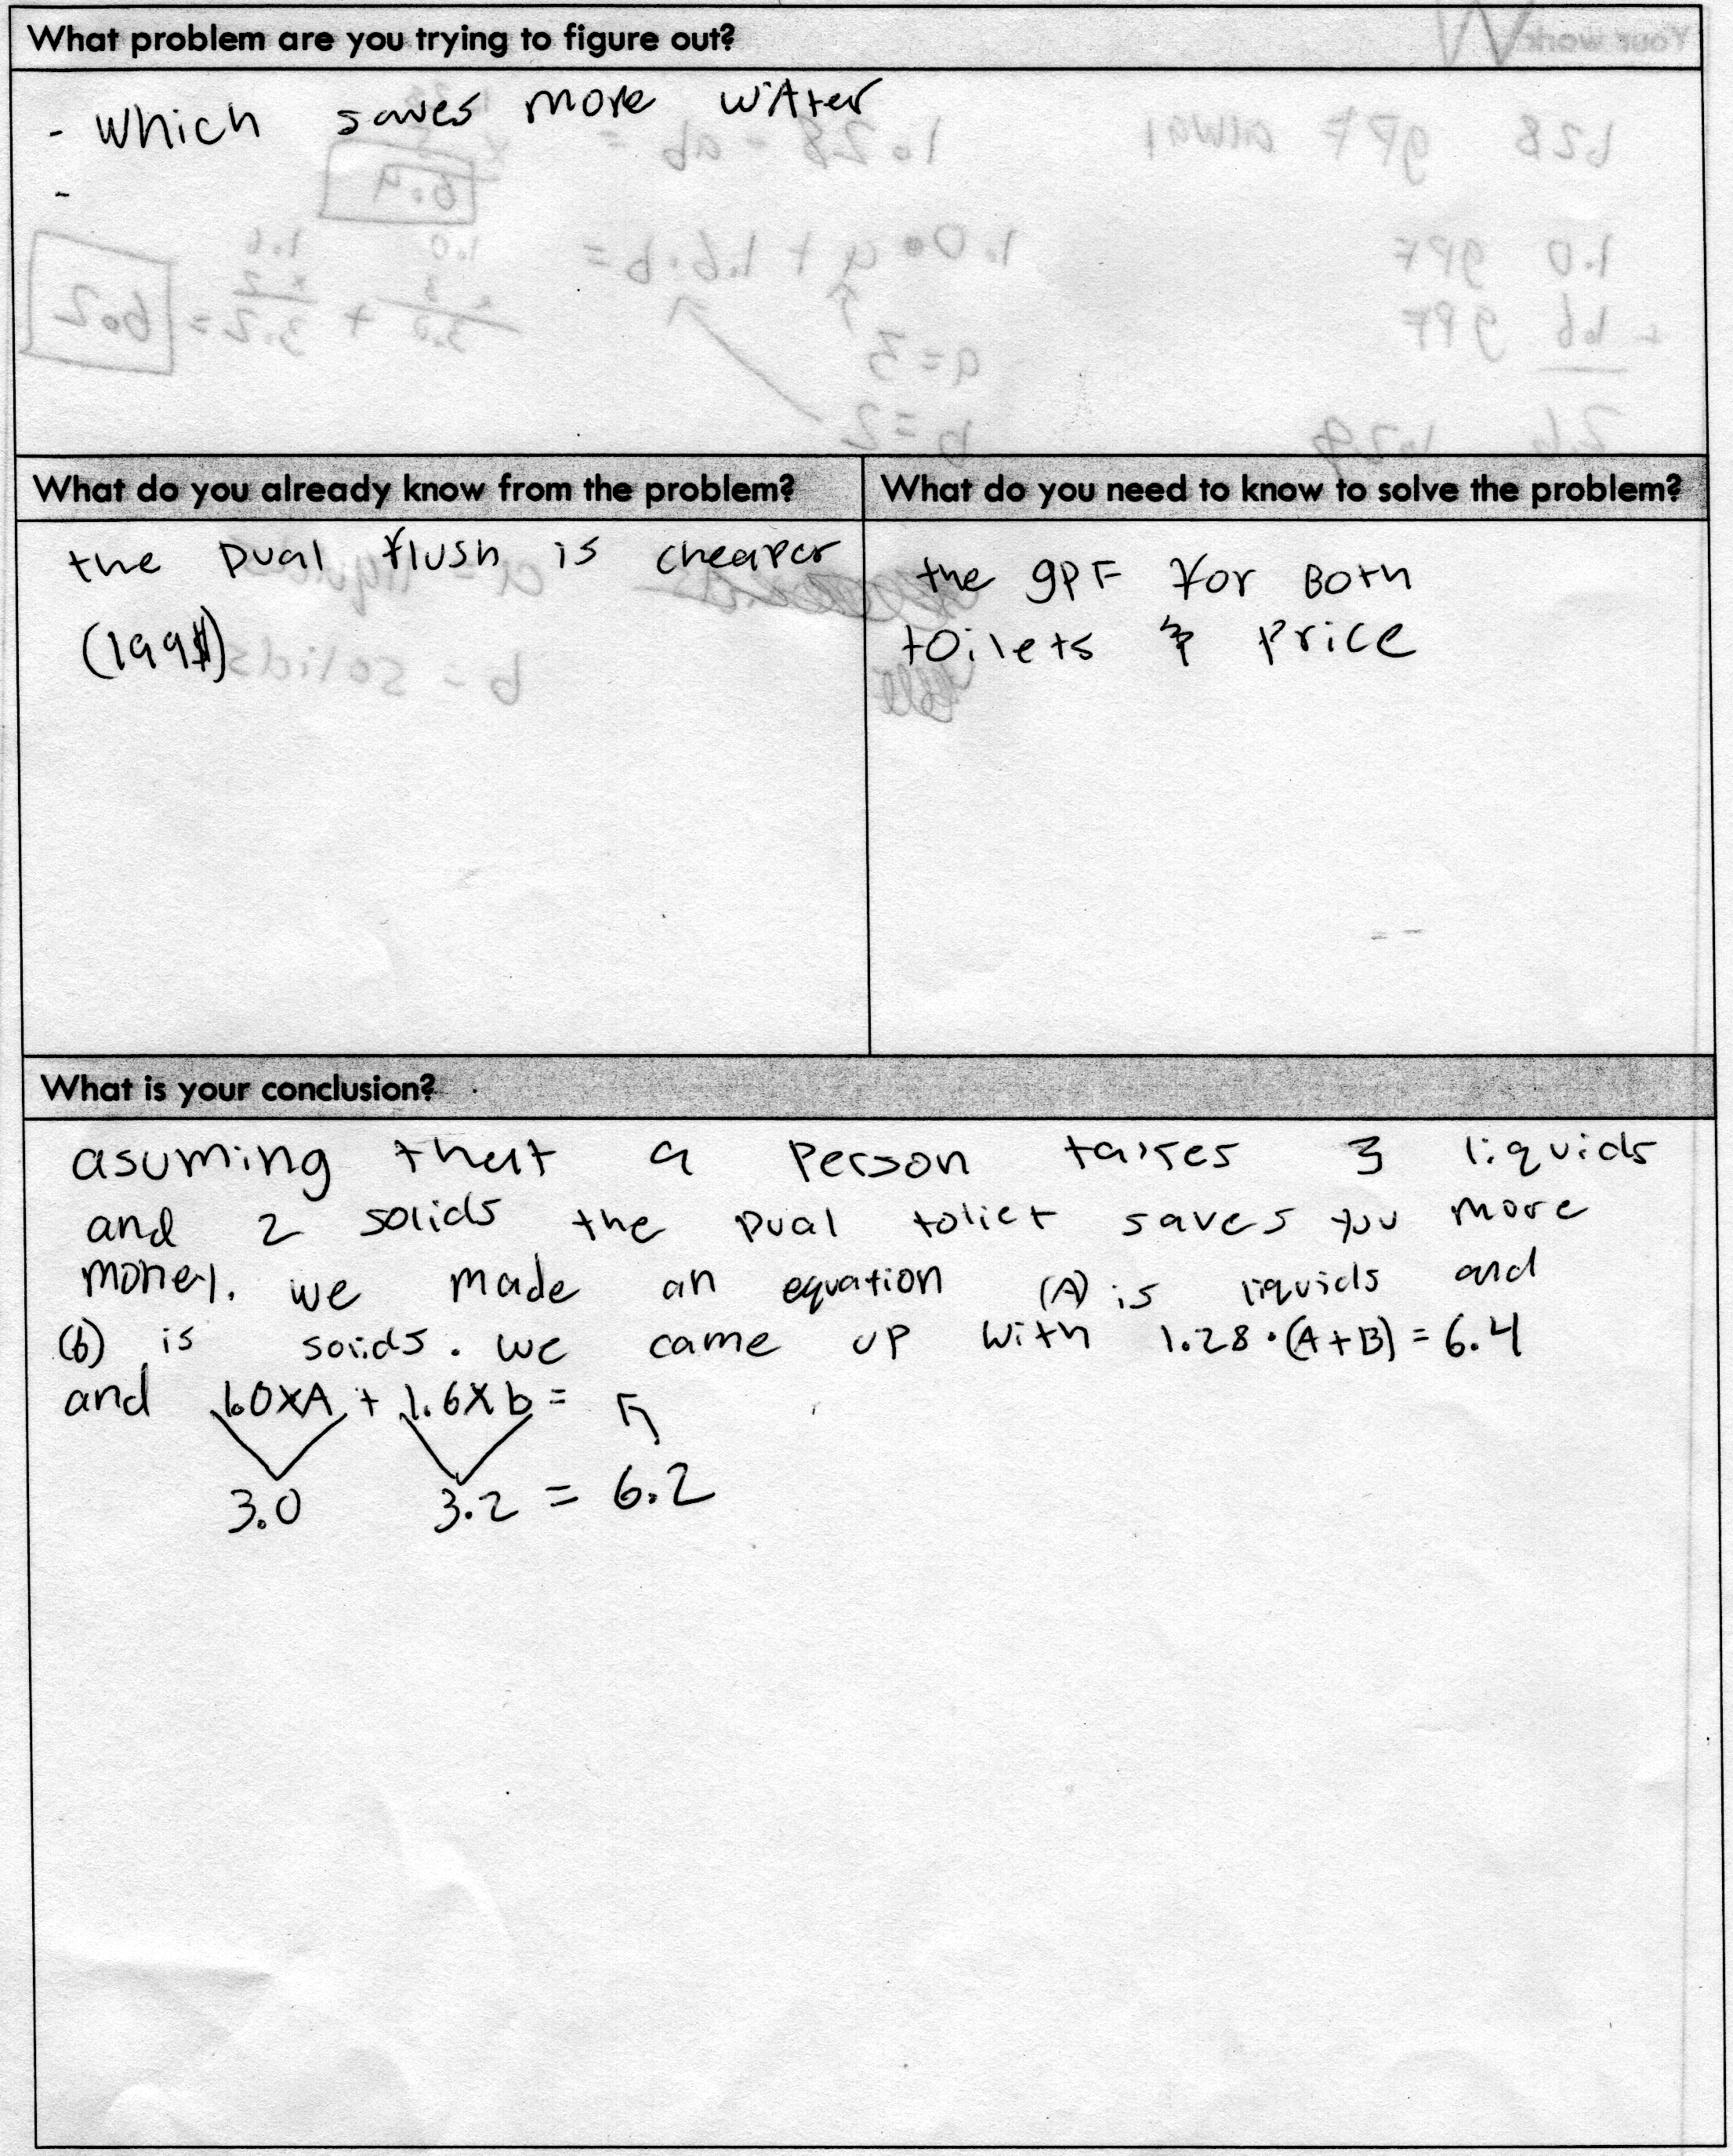 What problem are you trying to figure out?
- Which saves more wAter
-
What do you already know from the problem?
the Dual flush is cheaper
(199$)
What do you need to know to solve the problem?
the gPF for Both
toilets & Price
What is your conclusion?
asuming that a Person takes 3 liquids
and 2 solids the Dual toliet saves you more
money. we made an equation (A) is liquids and
(b) is soids. we came up with 1.28 • (A+B) = 6.4
and 1.0XA + 1.6Xb =
3.0 3.2 = 6.2